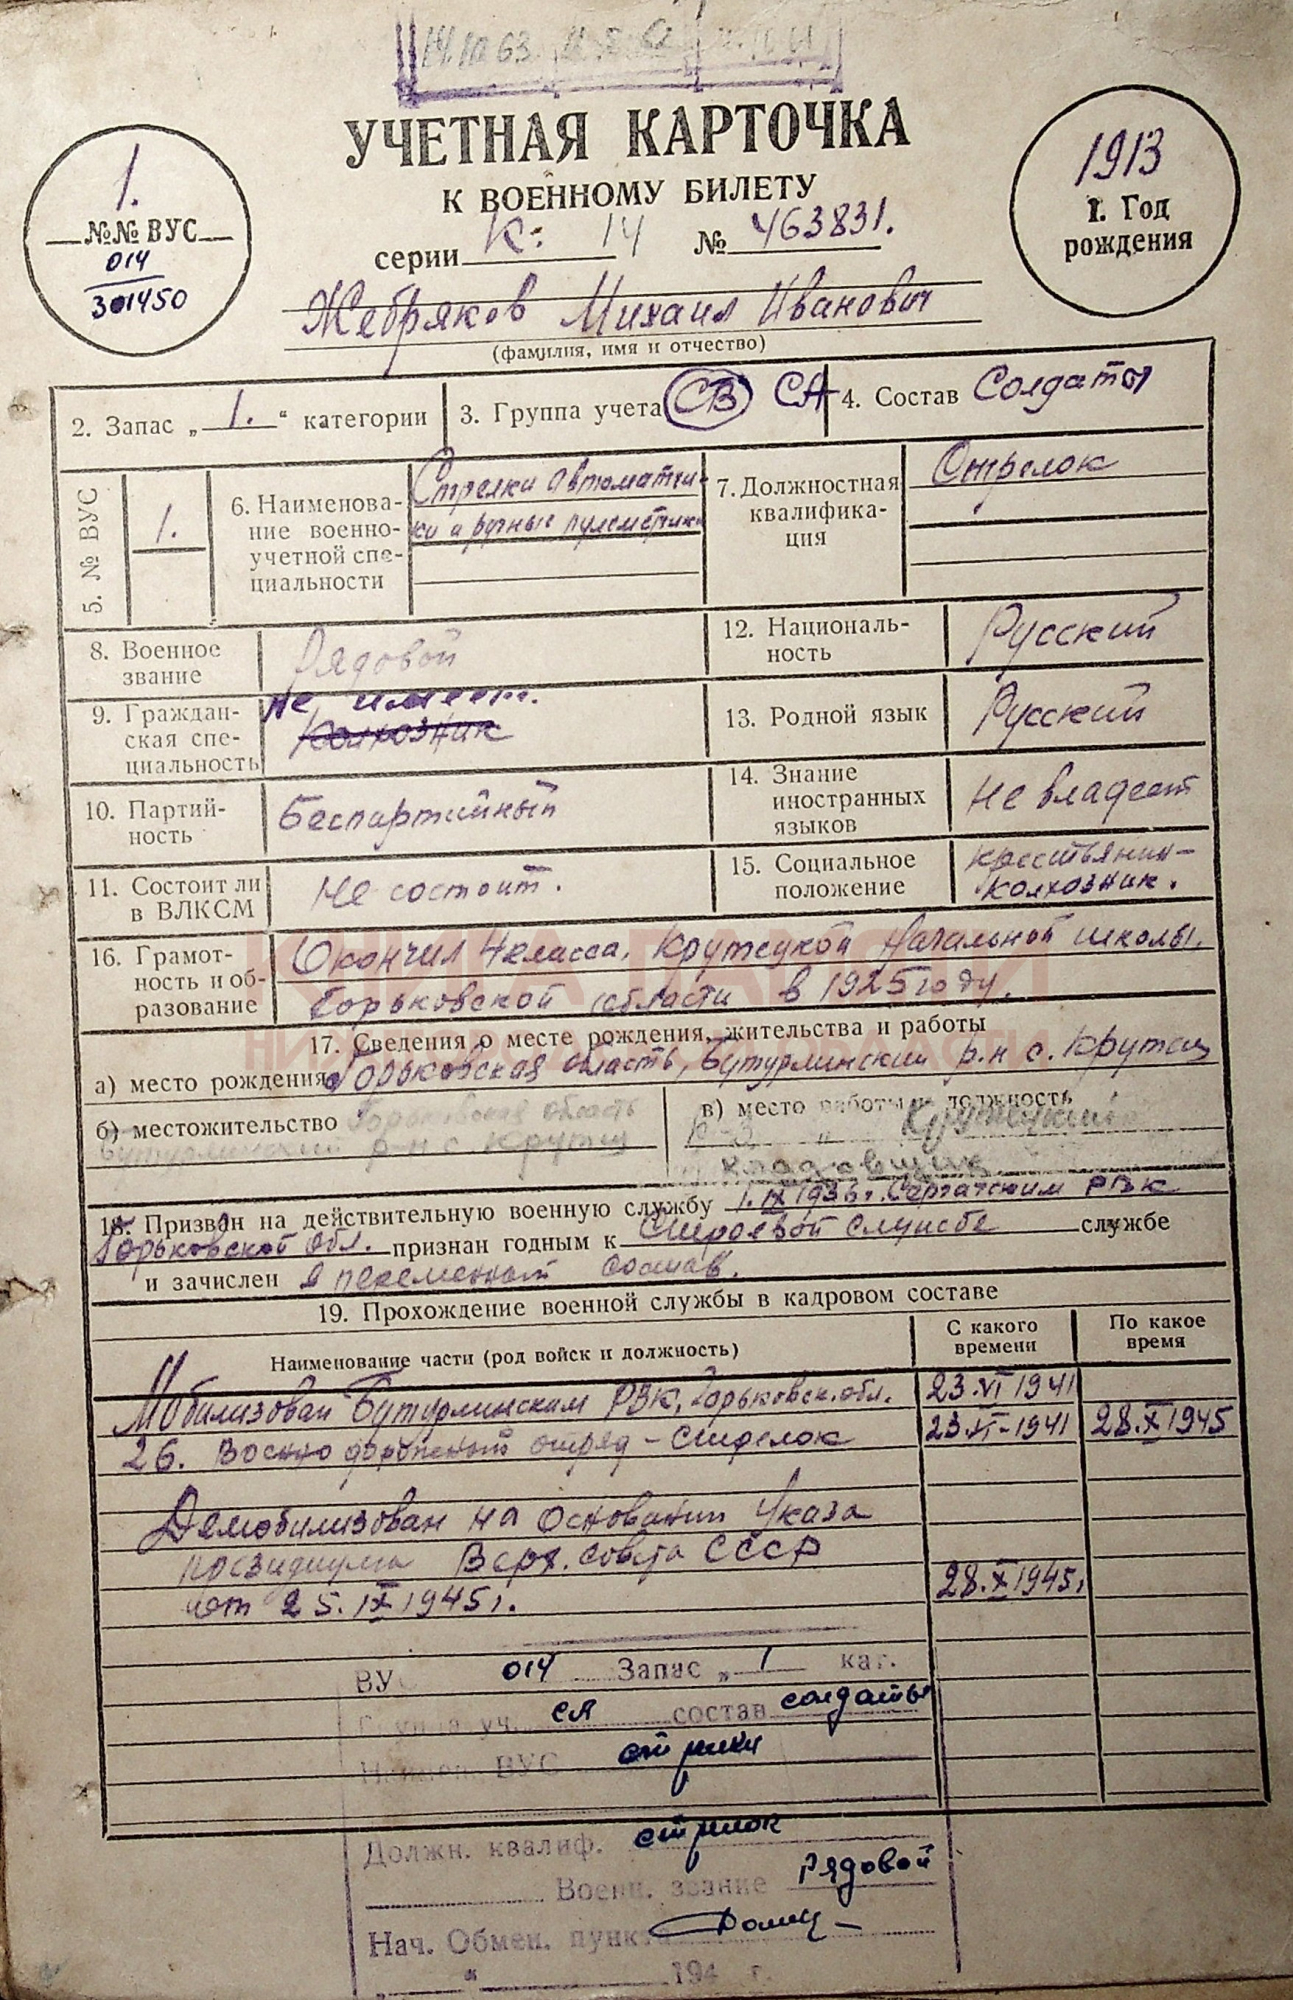 14.III 63
УЧЕТНАЯ КАРТОЧКА
К ВОЕННОМУ БИЛЕТУ
серии К: 14 № 463831.
1.
№№ ВУС
014
301450
1913
1. Год
рождения
Жебряков Михаил Иванович
(фамилия, имя и отчество)
2. Запас „ 1. “ категории
3. Группа учета СВ СА
4. Состав Солдаты
5. № ВУС
1.
6. Наименова-
ние военно-
учетной спе-
циальности
Стрелки автоматчи-
ки и ручные пулеметчики
7. Должностная
квалифика-
ция
Стрелок
8. Военное
звание
Рядовой
12. Националь-
ность
Русский
9. Граждан-
ская спе-
циальность
не имеет.
Колхозник
13. Родной язык
Русский
10. Партий-
ность
Беспартийный
14. Знание
иностранных
языков
не владеет
11. Состоит ли
в ВЛКСМ
Не состоит.
15. Социальное
положение
крестьянин-
колхозник.
16. Грамот-
ность и об-
разование
Окончил 4 класса, Крутецкой Начальной школы.
Горьковской области в 1925 году.
КНИГА ПАМЯТИ
НИЖЕГОРОДСКОЙ ОБЛАСТИ
17. Сведения о месте рождения, жительства и работы
а) место рождения Горьковская область, Бутурлинский р-н с. Крутец
б) местожительство Горьковская область
Бутурлинский р-н с. Крутец
в) место работы и должность
к-з „ Крутецкий
кладовщик
18. Призван на действительную военную службу 1.IX 1936 г. Сергачским РВК
Горьковской обл. признан годным к Строевой службе службе
и зачислен в переменный состав.
19. Прохождение военной службы в кадровом составе
Наименование части (род войск и должность)
С какого
времени
По какое
время
Мобилизован Бутурлинским РВК, Горьковск. обл. 23.VI 1941
26. Военно дорожный отряд - стрелок 23.VI-1941 28.X 1945
Демобилизован на основании Указа
президиума Верх. совета СССР
от 25.IX 1945 г. 28.X 1945 г.
ВУС 014 Запас „ 1 кат.
Группа уч. СА состав солдаты
Наимен. ВУС стрелки
Должн. квалиф. стрелок
Воен. звание Рядовой
Нач. Обмен. пункта
„ “ 194 г.